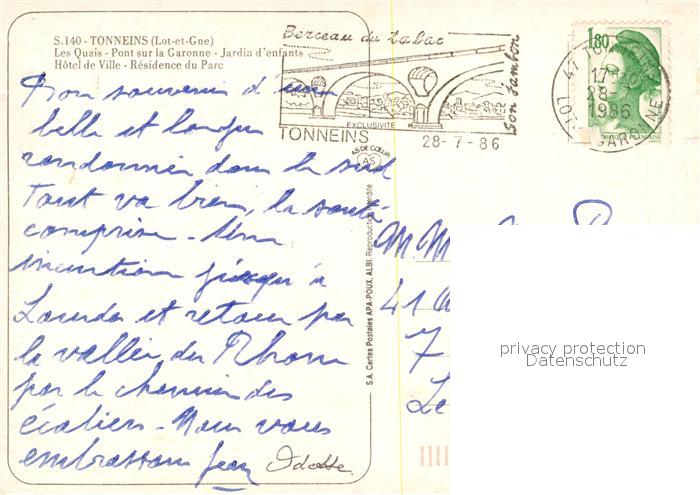 S.140 - TONNEINS (Lot-et-Gne)
Les Quais - Pont sur la Garonne - Jardin d'enfants
Hôtel de Ville - Résidence du Parc
Berceau du tabac
Son jambon
TONNEINS
28-7-86
1,80
47 TONNEINS
17H
28-
1986
LOT-GARONNE
EXCLUSIVITÉ
AS DE CŒUR
AS
S.A. Cartes Postales APA-POUX, ALBI. Reproduction interdite
Bon souvenir d'une
belle et longue
randonnée dans le sud
Tout va bien, la santé
comprise. Une
incursion jusqu'à
Lourdes et retour par
la vallée du Rhône
par le chemin des
écoliers - Nous vous
embrassons Jean Odette
M. M
41
7
Le
privacy protection
Datenschutz